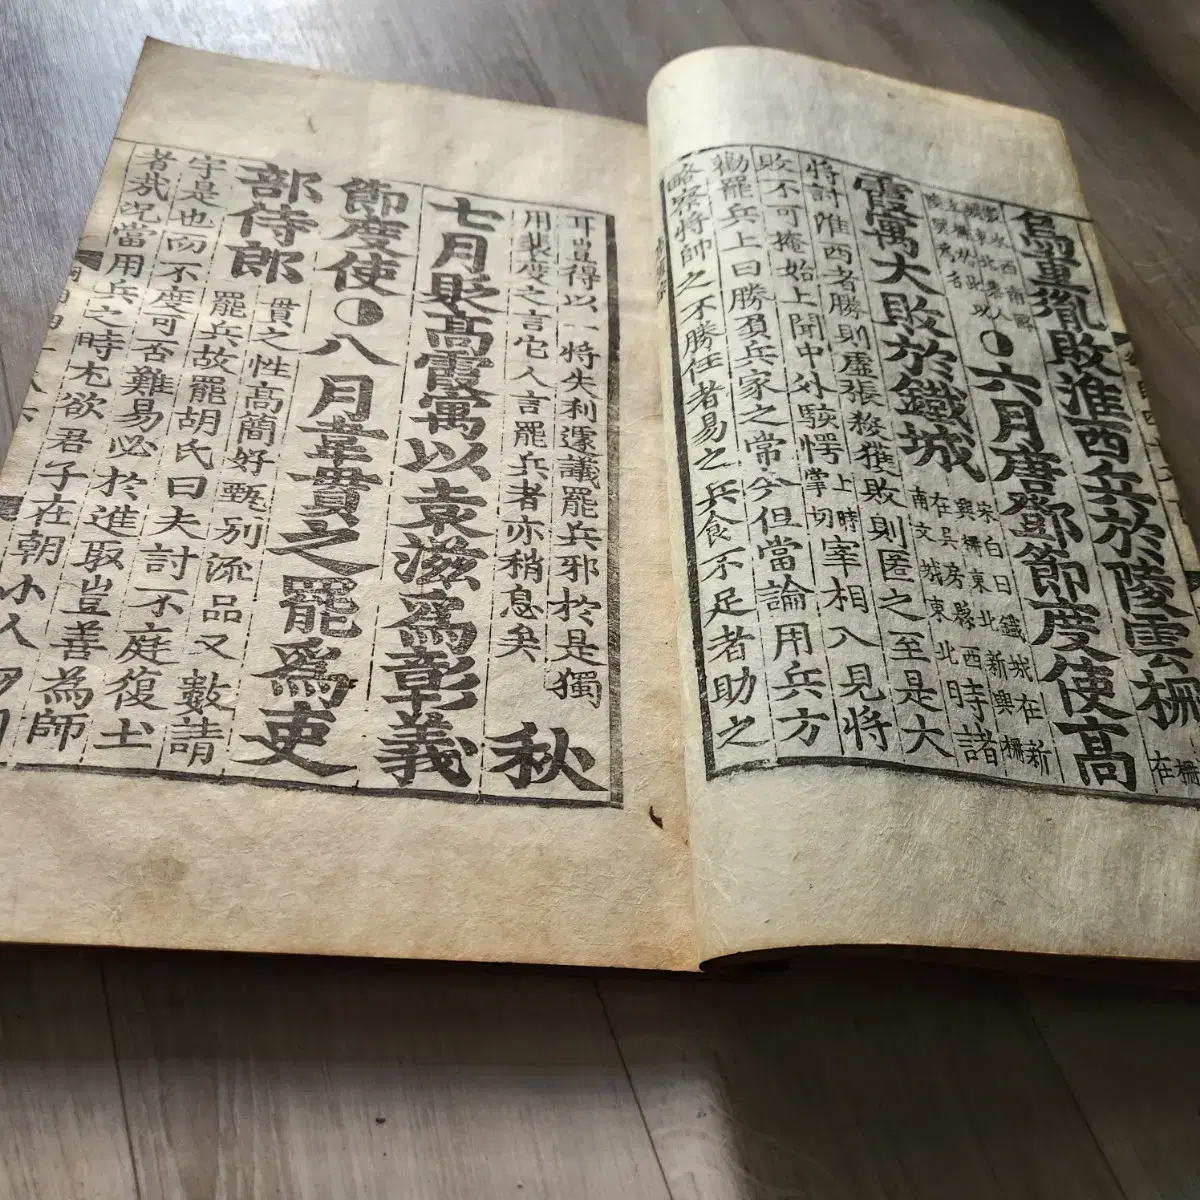 烏重胤敗淮西兵於陵雲柵 柵在
●六月唐鄧節度使高
霞寓大敗於鐵城 宋白曰鐵城在新
興柵東北新興柵
在吳房縣西
南文城東北
時諸
將討淮西者勝則虛張殺獲敗則匿之至是大
敗不可掩始上聞中外駭愕上時掌切宰相入見將
勸罷兵上曰勝負兵家之常今但當論用兵方
略察將帥之不勝任者易之兵食不足者助之
耳豈得以一將失利遽議罷兵邪於是獨
用裴度之言它人言罷兵者亦稍息矣
秋
七月貶高霞寓以袁滋爲彰義
節度使●八月韋貫之罷爲吏
部侍郎 貫之性高簡好甄別流品又數請
罷兵故罷胡氏曰夫討不庭復土
宇是也而不度可否難易必於進取豈善為師
者哉况當用兵之時尤欲君子在朝小人